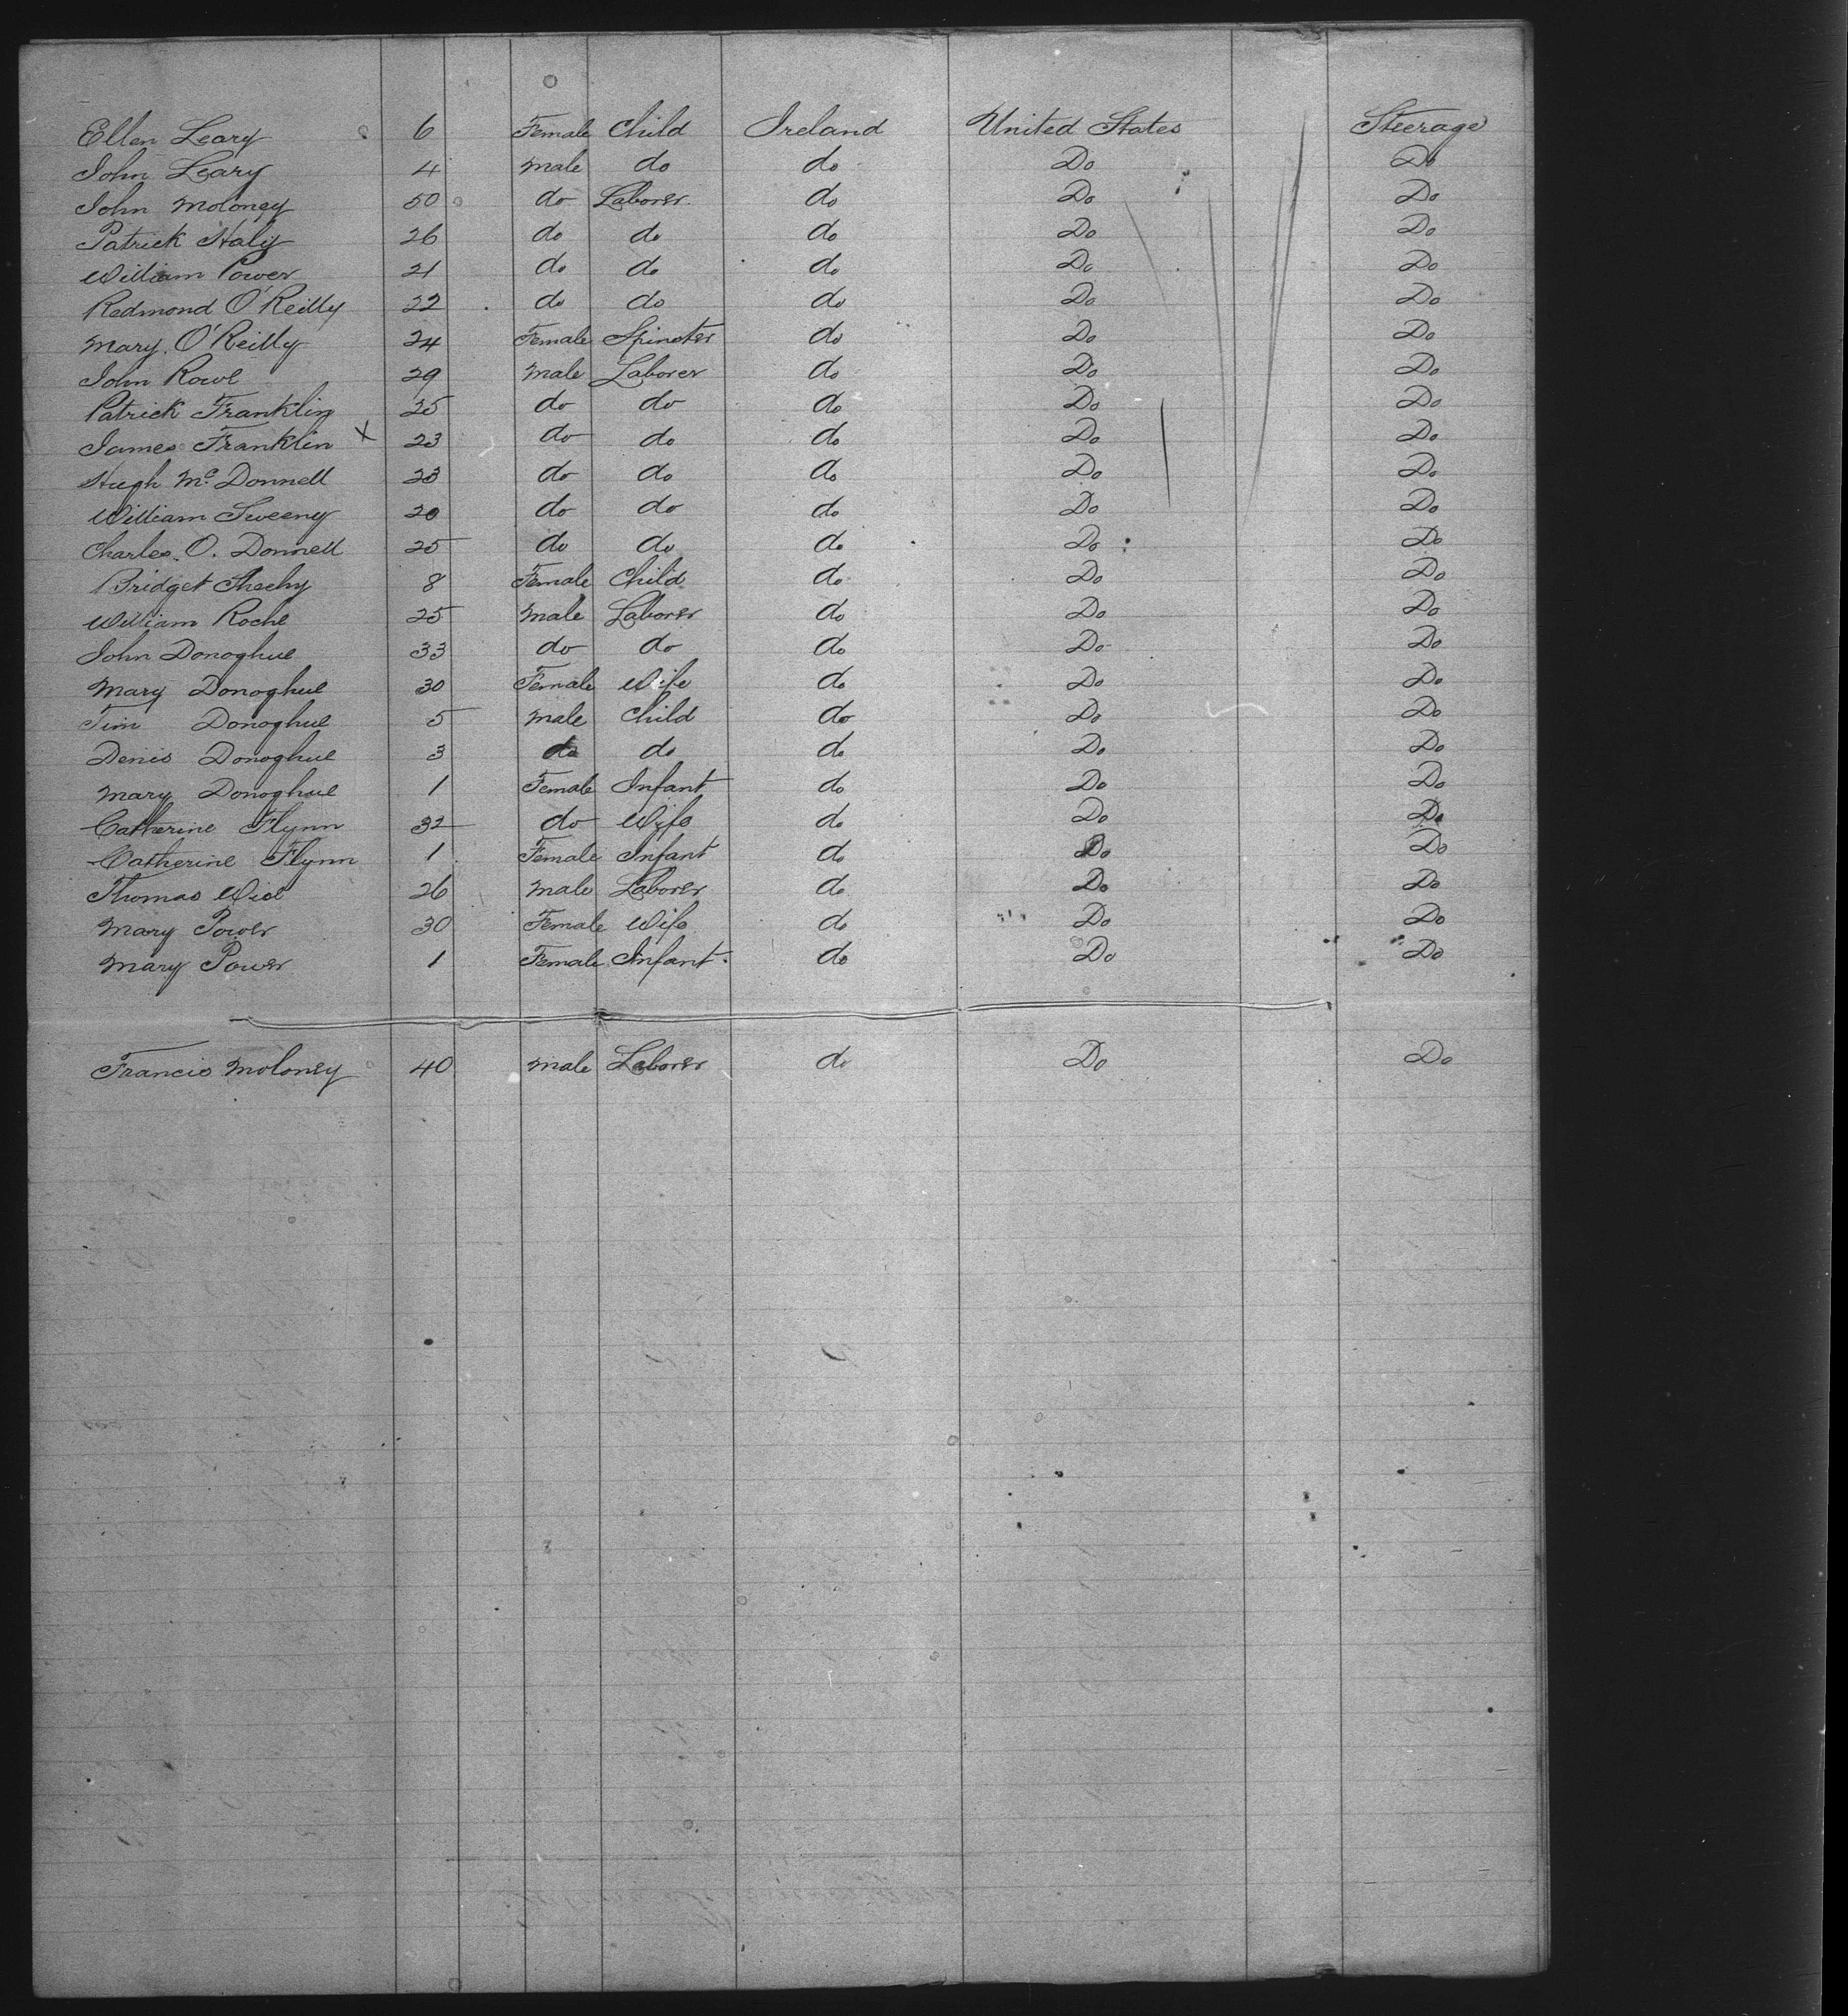 Ellen Leary 6 Female Child Ireland United States Steerage
John Leary 4 male do do Do Do
John Moloney 50 do Laborer do Do Do
Patrick Haly 26 do do do Do Do
William Power 21 do do do Do Do
Redmond O'Reilly 22 do do do Do Do
Mary O'Reilly 24 Female Spinster do Do Do
John Rowe 29 male Laborer do Do Do
Patrick Franklin 25 do do do Do Do
James Franklin X 23 do do do Do Do
Hugh McDonnell 23 do do do Do Do
William Sweeny 20 do do do Do Do
Charles O. Donnell 25 do do do Do Do
Bridget Sheehy 8 Female Child do Do Do
William Roche 25 male Laborer do Do Do
John Donoghue 33 do do do Do Do
Mary Donoghue 30 Female Wife do Do Do
Tim Donoghue 5 male Child do Do Do
Denis Donoghue 3 do do do Do Do
Mary Donoghue 1 Female Infant do Do Do
Catherine Flynn 32 do Wife do Do Do
Catherine Flynn 1 Female Infant do Do Do
Thomas Wise 26 male Laborer do Do Do
Mary Power 30 Female Wife do Do Do
Mary Power 1 Female Infant do Do Do
Francis Moloney 40 male Laborer do Do Do